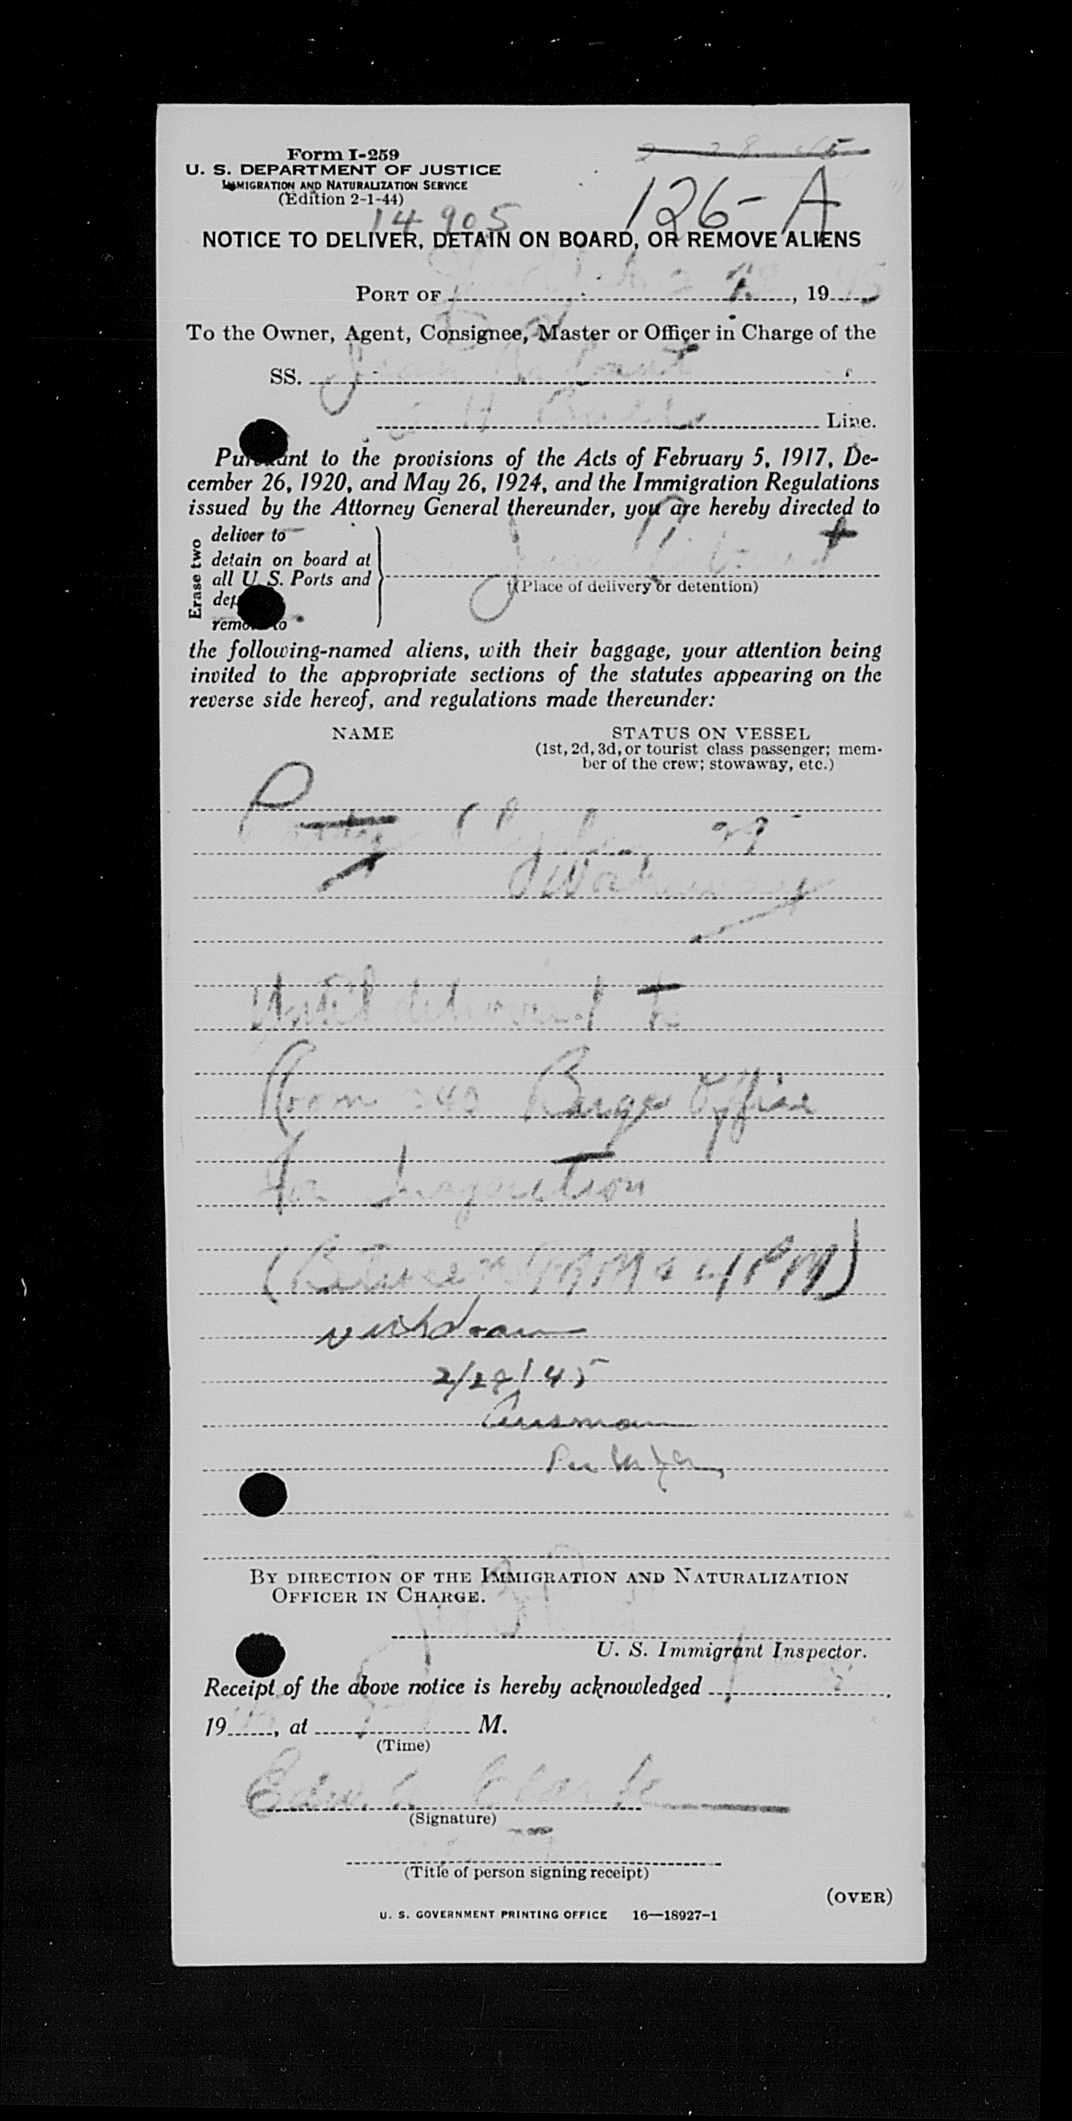 Form I-259
U. S. DEPARTMENT OF JUSTICE
IMMIGRATION AND NATURALIZATION SERVICE
(Edition 2-1-44)
14905
126-A
NOTICE TO DELIVER, DETAIN ON BOARD, OR REMOVE ALIENS
PORT OF , 19
To the Owner, Agent, Consignee, Master or Officer in Charge of the
SS. Jean
Line.
Pursuant to the provisions of the Acts of February 5, 1917, De-
cember 26, 1920, and May 26, 1924, and the Immigration Regulations
issued by the Attorney General thereunder, you are hereby directed to
Erase two
deliver to
detain on board at
all U. S. Ports and
remove to
Jean
(Place of delivery or detention)
the following-named aliens, with their baggage, your attention being
invited to the appropriate sections of the statutes appearing on the
reverse side hereof, and regulations made thereunder:
NAME STATUS ON VESSEL
(1st, 2d, 3d, or tourist class passenger; mem-
ber of the crew; stowaway, etc.)
Until delivered to
Room 240 Barge Office
For Inspection
(Between 9 AM & 4 PM)
withdrawn
2/28/45
By direction of the Immigration and Naturalization
Officer in Charge.
U. S. Immigrant Inspector.
Receipt of the above notice is hereby acknowledged ,
19 , at M.
(Time)
Clark
(Signature)
(Title of person signing receipt)
(OVER)
U. S. GOVERNMENT PRINTING OFFICE 16—18927-1